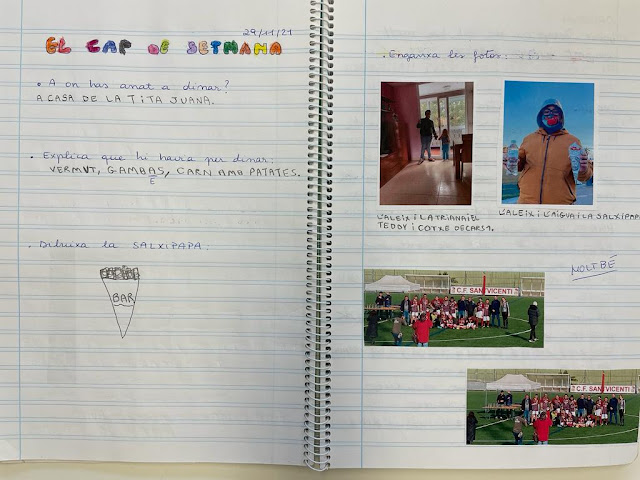 29/11/21
EL CAP DE SETMANA
• A on has anat a dinar?
A CASA DE LA TITA JUANA.
• Explica que hi havia per dinar:
VERMUT, GAMBAS, CARN AMB PATATES.
E
• Dibuixa la SALXIPAPA:
BAR
• Enganxa les fotos:
L'ALEIX I LA TRIANA I EL
TEDDY I COTXE DE CARSA.
L'ALEIX I L'AIGUA I LA SALXIPAPA
MOLT BÉ
C.F. SANT VICENTI
C.F. SANT VICENTI